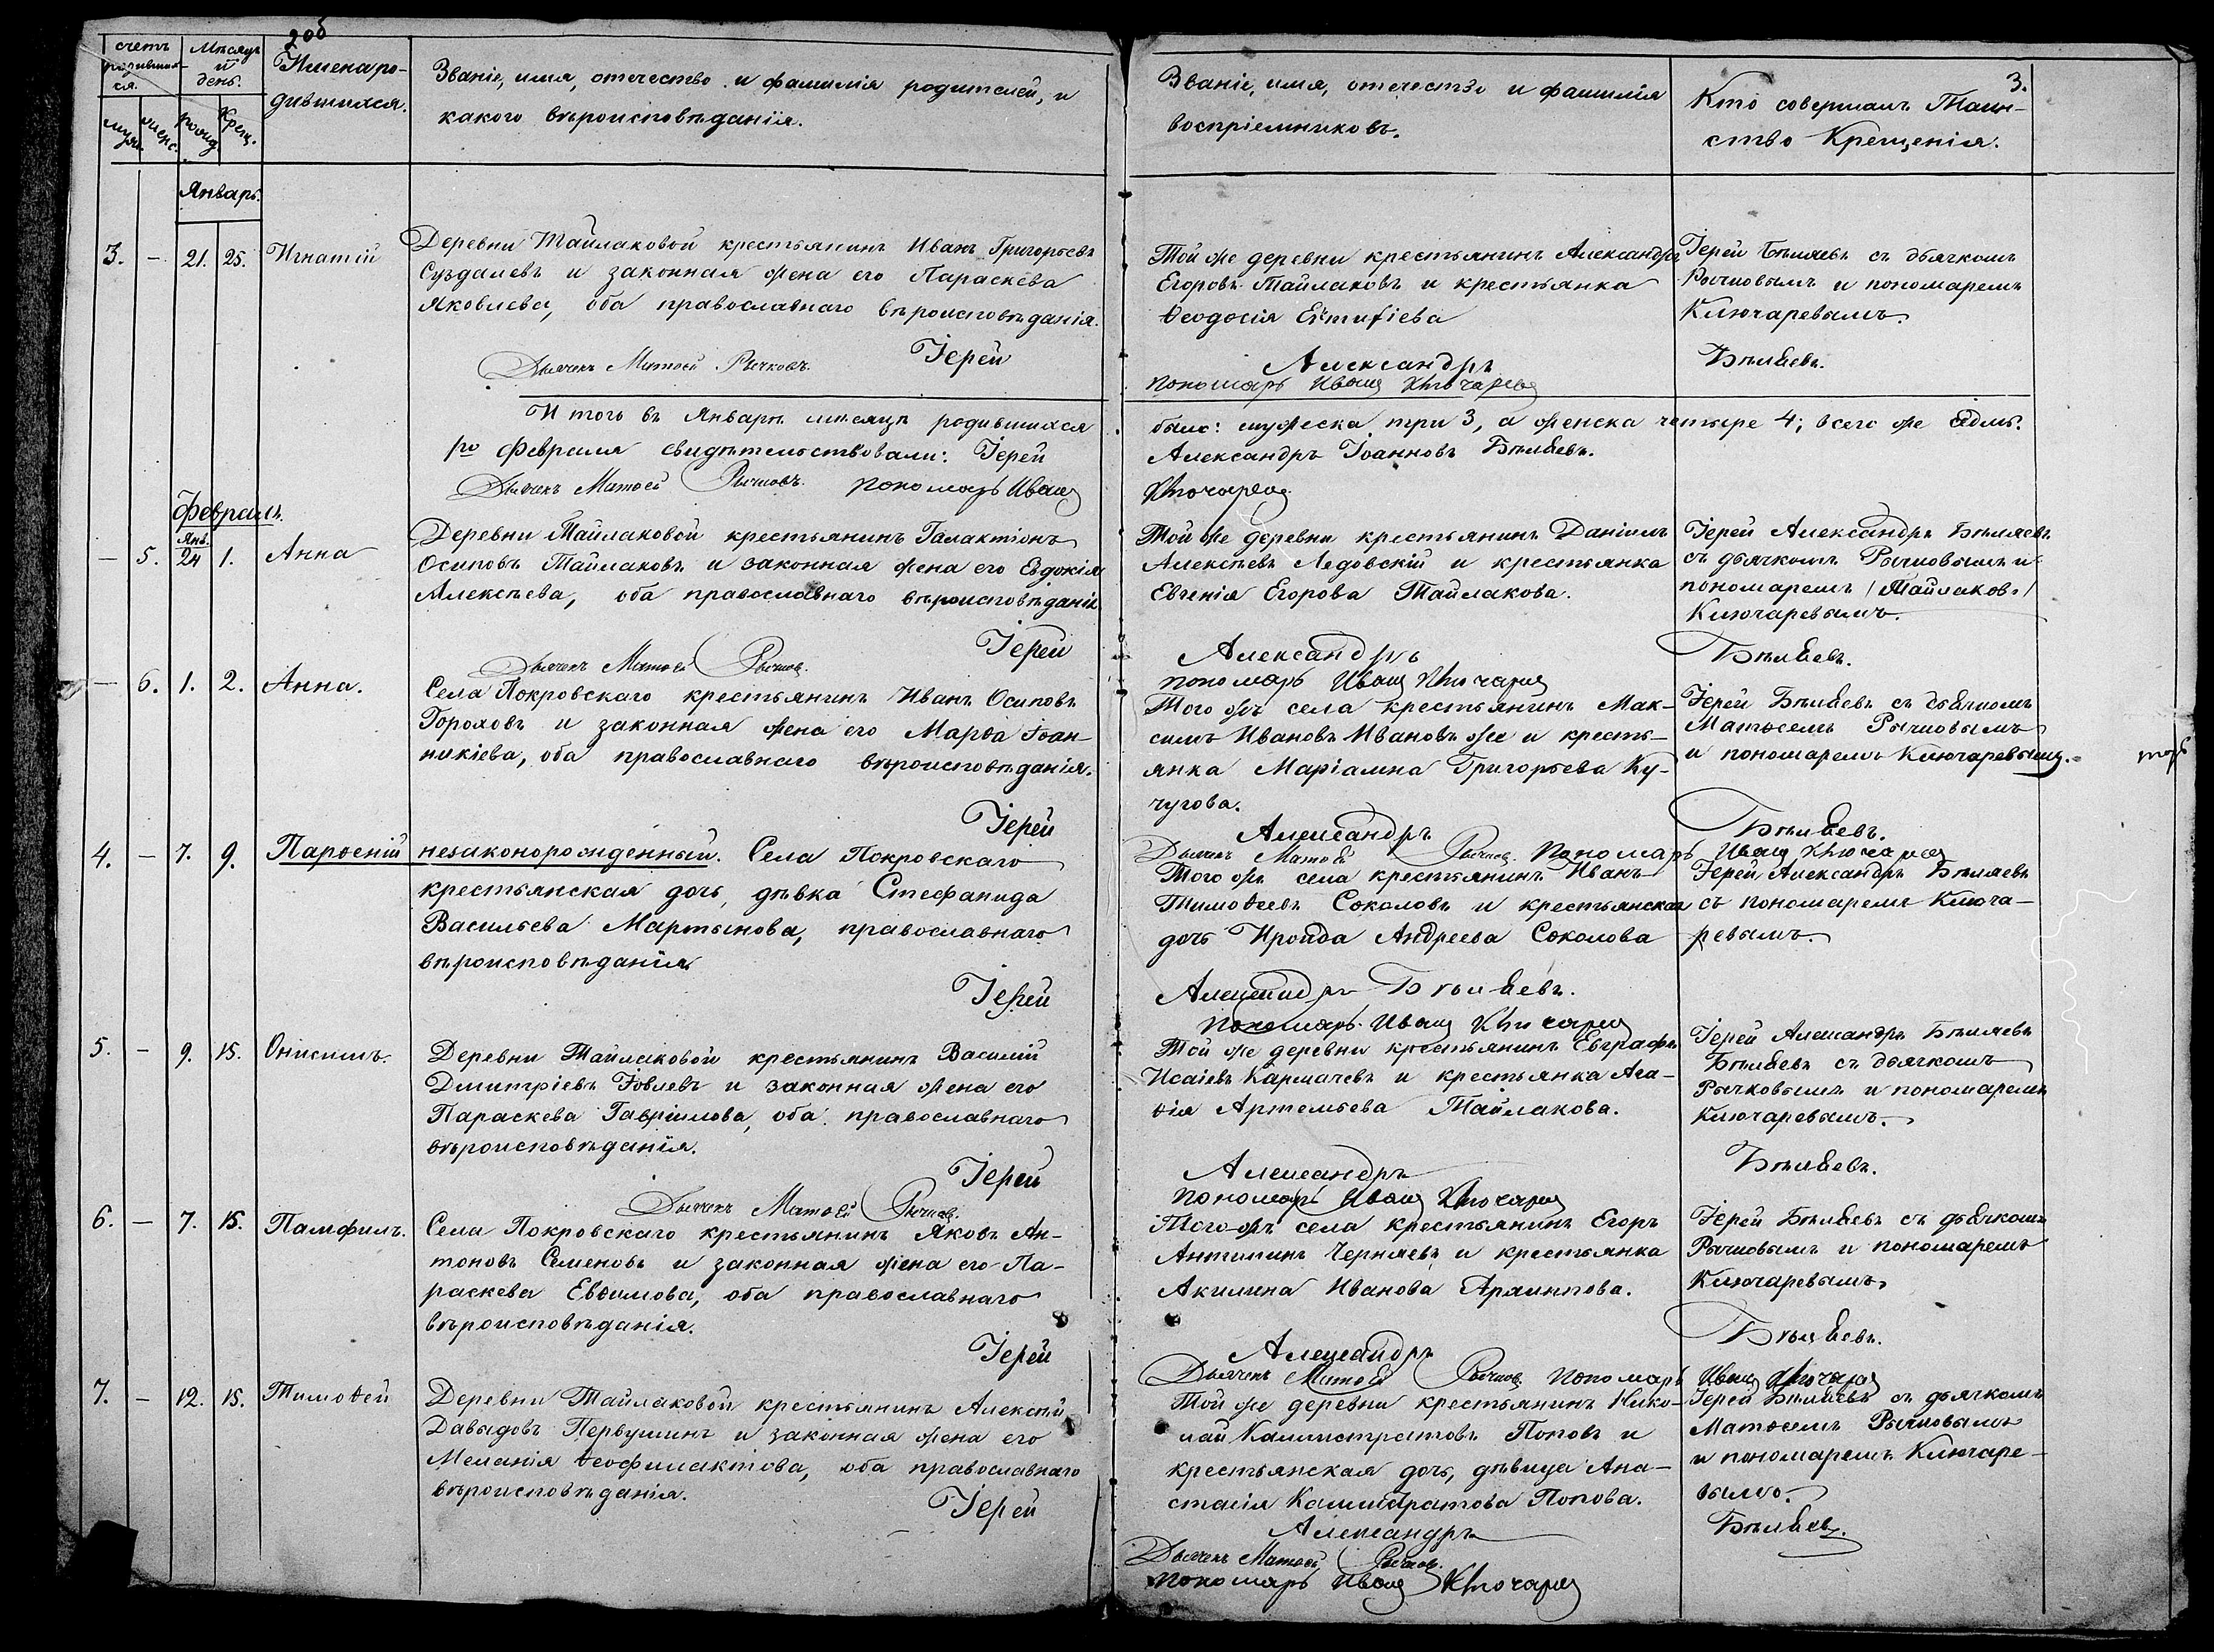 206
счетъ родившихся.
Мѣсяцъ и день.
Имена родившихся.
Званіе, имя, отечество и фамилія родителей, и
какого вѣроисповѣданія.
муж.
женс.
рожд.
Крещ.
Званіе, имя, отечество и фамилія
воспріемниковъ.
Кто совершалъ Таин-
ство Крещенія.
3.
Январь.
3. - 21. 25. Игнатій
Деревни Тайлаковой крестьянинъ Иванъ Григорьевъ
Суздалевъ и законная жена его Параскева
Яковлева, оба православнаго вѣроисповѣданія.
Іерей
Дьячекъ Матѳей Рычковъ.
Той же деревни крестьянинъ Александръ
Егоровъ Тайлаковъ и крестьянка
Ѳеодосія
Александръ
пономарь Иванъ Ключаревъ
Іерей Бѣляевъ съ дьячкомъ
Рычковымъ и пономаремъ
Ключаревымъ.
Бѣляевъ.
Итого въ Январѣ мѣсяцѣ родившихся
было: мужеска три 3, а женска четыре 4; всего же седмь.
Февраля свидѣтельствовали: Іерей
Александръ Іоанновъ Бѣляевъ.
Дьячекъ Матѳей Рычковъ. пономарь Иванъ
Ключаревъ
Февраль.
- 5. Янв. 24 1. Анна
Деревни Тайлаковой крестьянинъ Галактіонъ
Осиповъ Тайлаковъ и законная жена его Евдокія
Алексѣева, оба православнаго вѣроисповѣданія
Іерей
Дьячекъ Матѳей Рычковъ.
Той же деревни крестьянинъ Даніилъ
Алексѣевъ Ледовскій и крестьянка
Евгенія Егорова Тайлакова.
Александръ
пономарь Иванъ Ключаревъ
Іерей Александръ Бѣляевъ
съ дьячкомъ Рычковымъ и
пономаремъ /Тайлаков./
Ключаревымъ.
Бѣляевъ.
- 6. 1. 2. Анна.
Села Покровскаго крестьянинъ Иванъ Осиповъ
Гороховъ и законная жена его Марѳа Іоан-
никіева, оба православнаго вѣроисповѣданія.
Іерей
Того жъ села крестьянинъ Мак-
симъ Ивановъ Ивановъ же и кресть-
янка Маріамна Григорьева Ку-
чугова.
Александръ
Дьячекъ Матѳей Рычковъ. Пономарь Иванъ Ключаревъ
Іерей Бѣляевъ съ дьячкомъ
Матѳеемъ Рычковымъ
и пономаремъ Ключаревымъ.
Бѣляевъ.
4. - 7. 9. Парѳеній
незаконорожденный. Села Покровскаго
крестьянская дочь, дѣвка Стефанида
Васильева Мартынова, православнаго
вѣроисповѣданія.
Іерей
Того жъ села крестьянинъ Иванъ
Тимоѳеевъ Соколовъ и крестьянская
дочь Ироида Андреева Соколова
Александръ Бѣляевъ.
пономарь Иванъ Ключаревъ
Іерей Александръ Бѣляевъ
съ пономаремъ Ключа-
ревымъ.
5. - 9. 15. Онисимъ.
Деревни Тайлаковой крестьянинъ Василій
Дмитріевъ Іовлевъ и законная жена его
Параскева Гавріилова, оба православнаго
вѣроисповѣданія.
Іерей
Дьячекъ Матѳей Рычковъ.
Той же деревни крестьянинъ Евграфъ
Исаіевъ Кармачевъ и крестьянка Ага-
ѳія Артемьева Тайлакова.
Александръ
пономарь Иванъ Ключаревъ
Іерей Александръ Бѣляевъ
Бѣляевъ съ дьячкомъ
Рычковымъ и пономаремъ
Ключаревымъ.
Бѣляевъ.
6. - 7. 15. Памфилъ.
Села Покровскаго крестьянинъ Яковъ Ан-
тоновъ Семеновъ и законная жена его Па-
раскева Евѳимова, оба православнаго
вѣроисповѣданія.
Іерей
Того жъ села крестьянинъ Егоръ
Антипинъ Черняевъ и крестьянка
Акилина Иванова
Александръ
Дьячекъ Матѳей Рычковъ. Пономарь Иванъ Ключаревъ
Іерей Бѣляевъ съ дьячкомъ
Рычковымъ и пономаремъ
Ключаревымъ.
Бѣляевъ.
7. - 12. 15. Тимоѳей
Деревни Тайлаковой крестьянинъ Алексѣй
Давыдовъ Первушинъ и законная жена его
Меланія Ѳеофилактова, оба православнаго
вѣроисповѣданія.
Іерей
Той же деревни крестьянинъ Нико-
лай Каллистратовъ Поповъ и
крестьянская дочь, дѣвица Ана-
стасія Калистратова Попова.
Александръ
Дьячекъ Матѳей Рычковъ.
пономарь Иванъ Ключаревъ
Іерей Бѣляевъ съ дьячкомъ
Матѳеемъ Рычковымъ
и пономаремъ Ключаре-
вымъ.
Бѣляевъ.